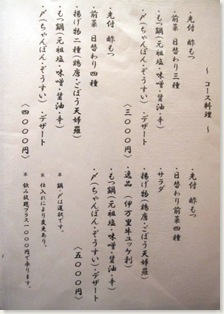 ～ コース料理 ～
・先付 酢もつ
・前菜 日替わり三種
・もつ鍋(元祖塩・味噌・醤油・辛)
・〆(ちゃんぽん・ぞうすい)・デザート
(三〇〇〇円)
・先付 酢もつ
・前菜 日替わり四種
・揚げ物二種(鶏唐・ごぼう天婦羅)
・もつ鍋(元祖塩・味噌・醤油・辛)
・〆(ちゃんぽん・ぞうすい)・デザート
(四〇〇〇円)
・先付 酢もつ
・日替わり前菜四種
・サラダ
・揚げ物(鶏唐・ごぼう天婦羅)
・逸品(伊万里牛ユッケ)
・もつ鍋(元祖塩・味噌・醤油・辛)
・〆(ちゃんぽん・ぞうすい)・デザート
(五〇〇〇円)
※ 鍋・〆は選択です。
※ 仕入れにより変更あり。
※ 飲み放題プラス一〇〇〇円で承ります。